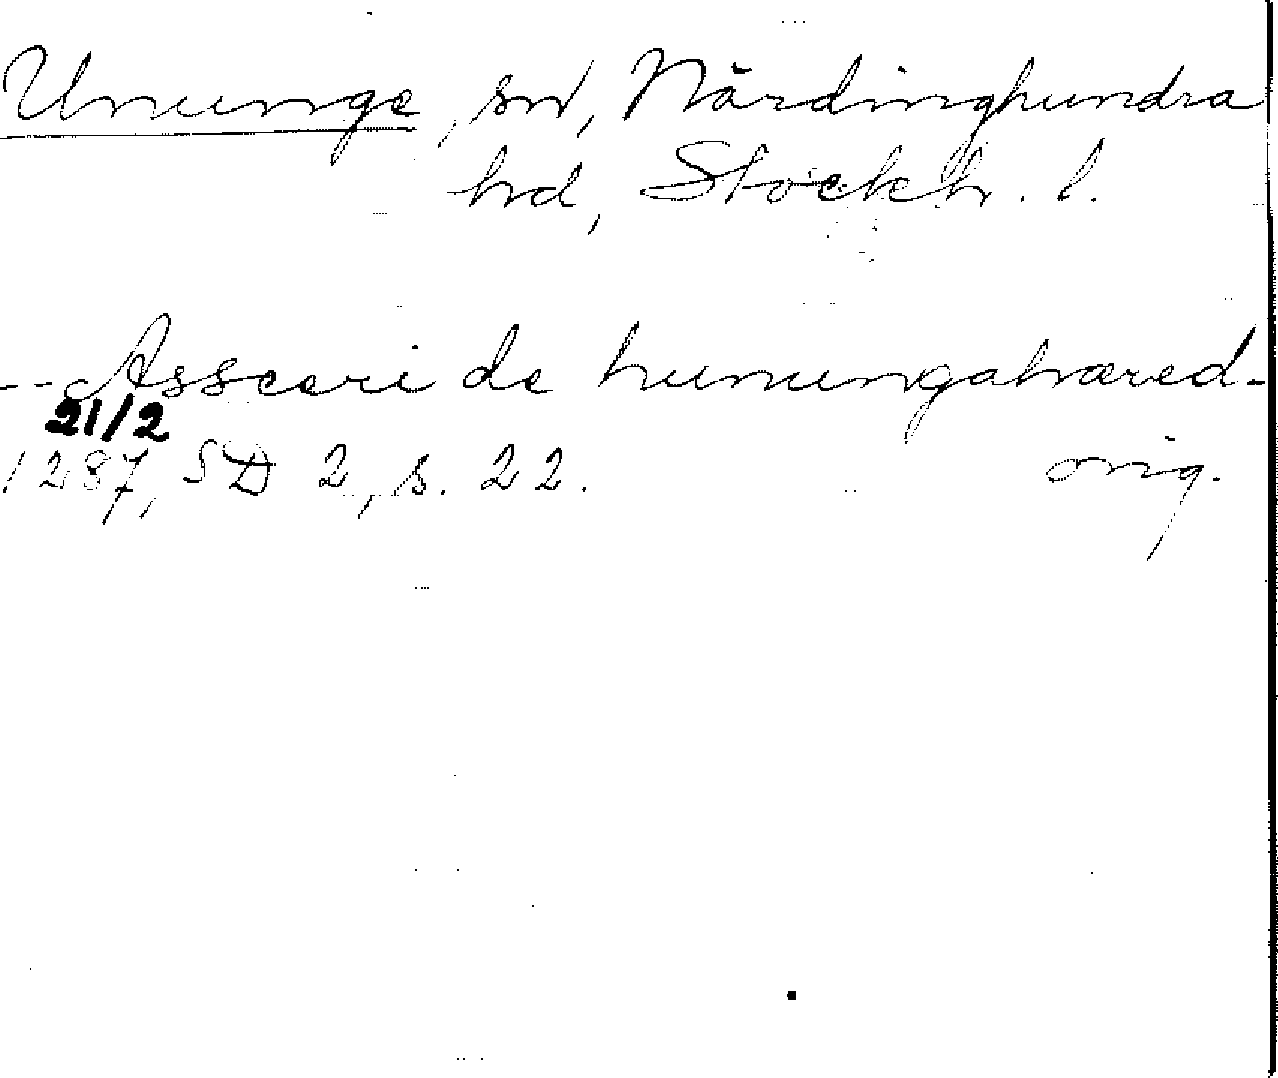 Ununge, sn, Närdinghundra
hd, Stockh. l.
-- Assceri de hunungahæred-
21/2
1287, SD 2, s. 22. orig.